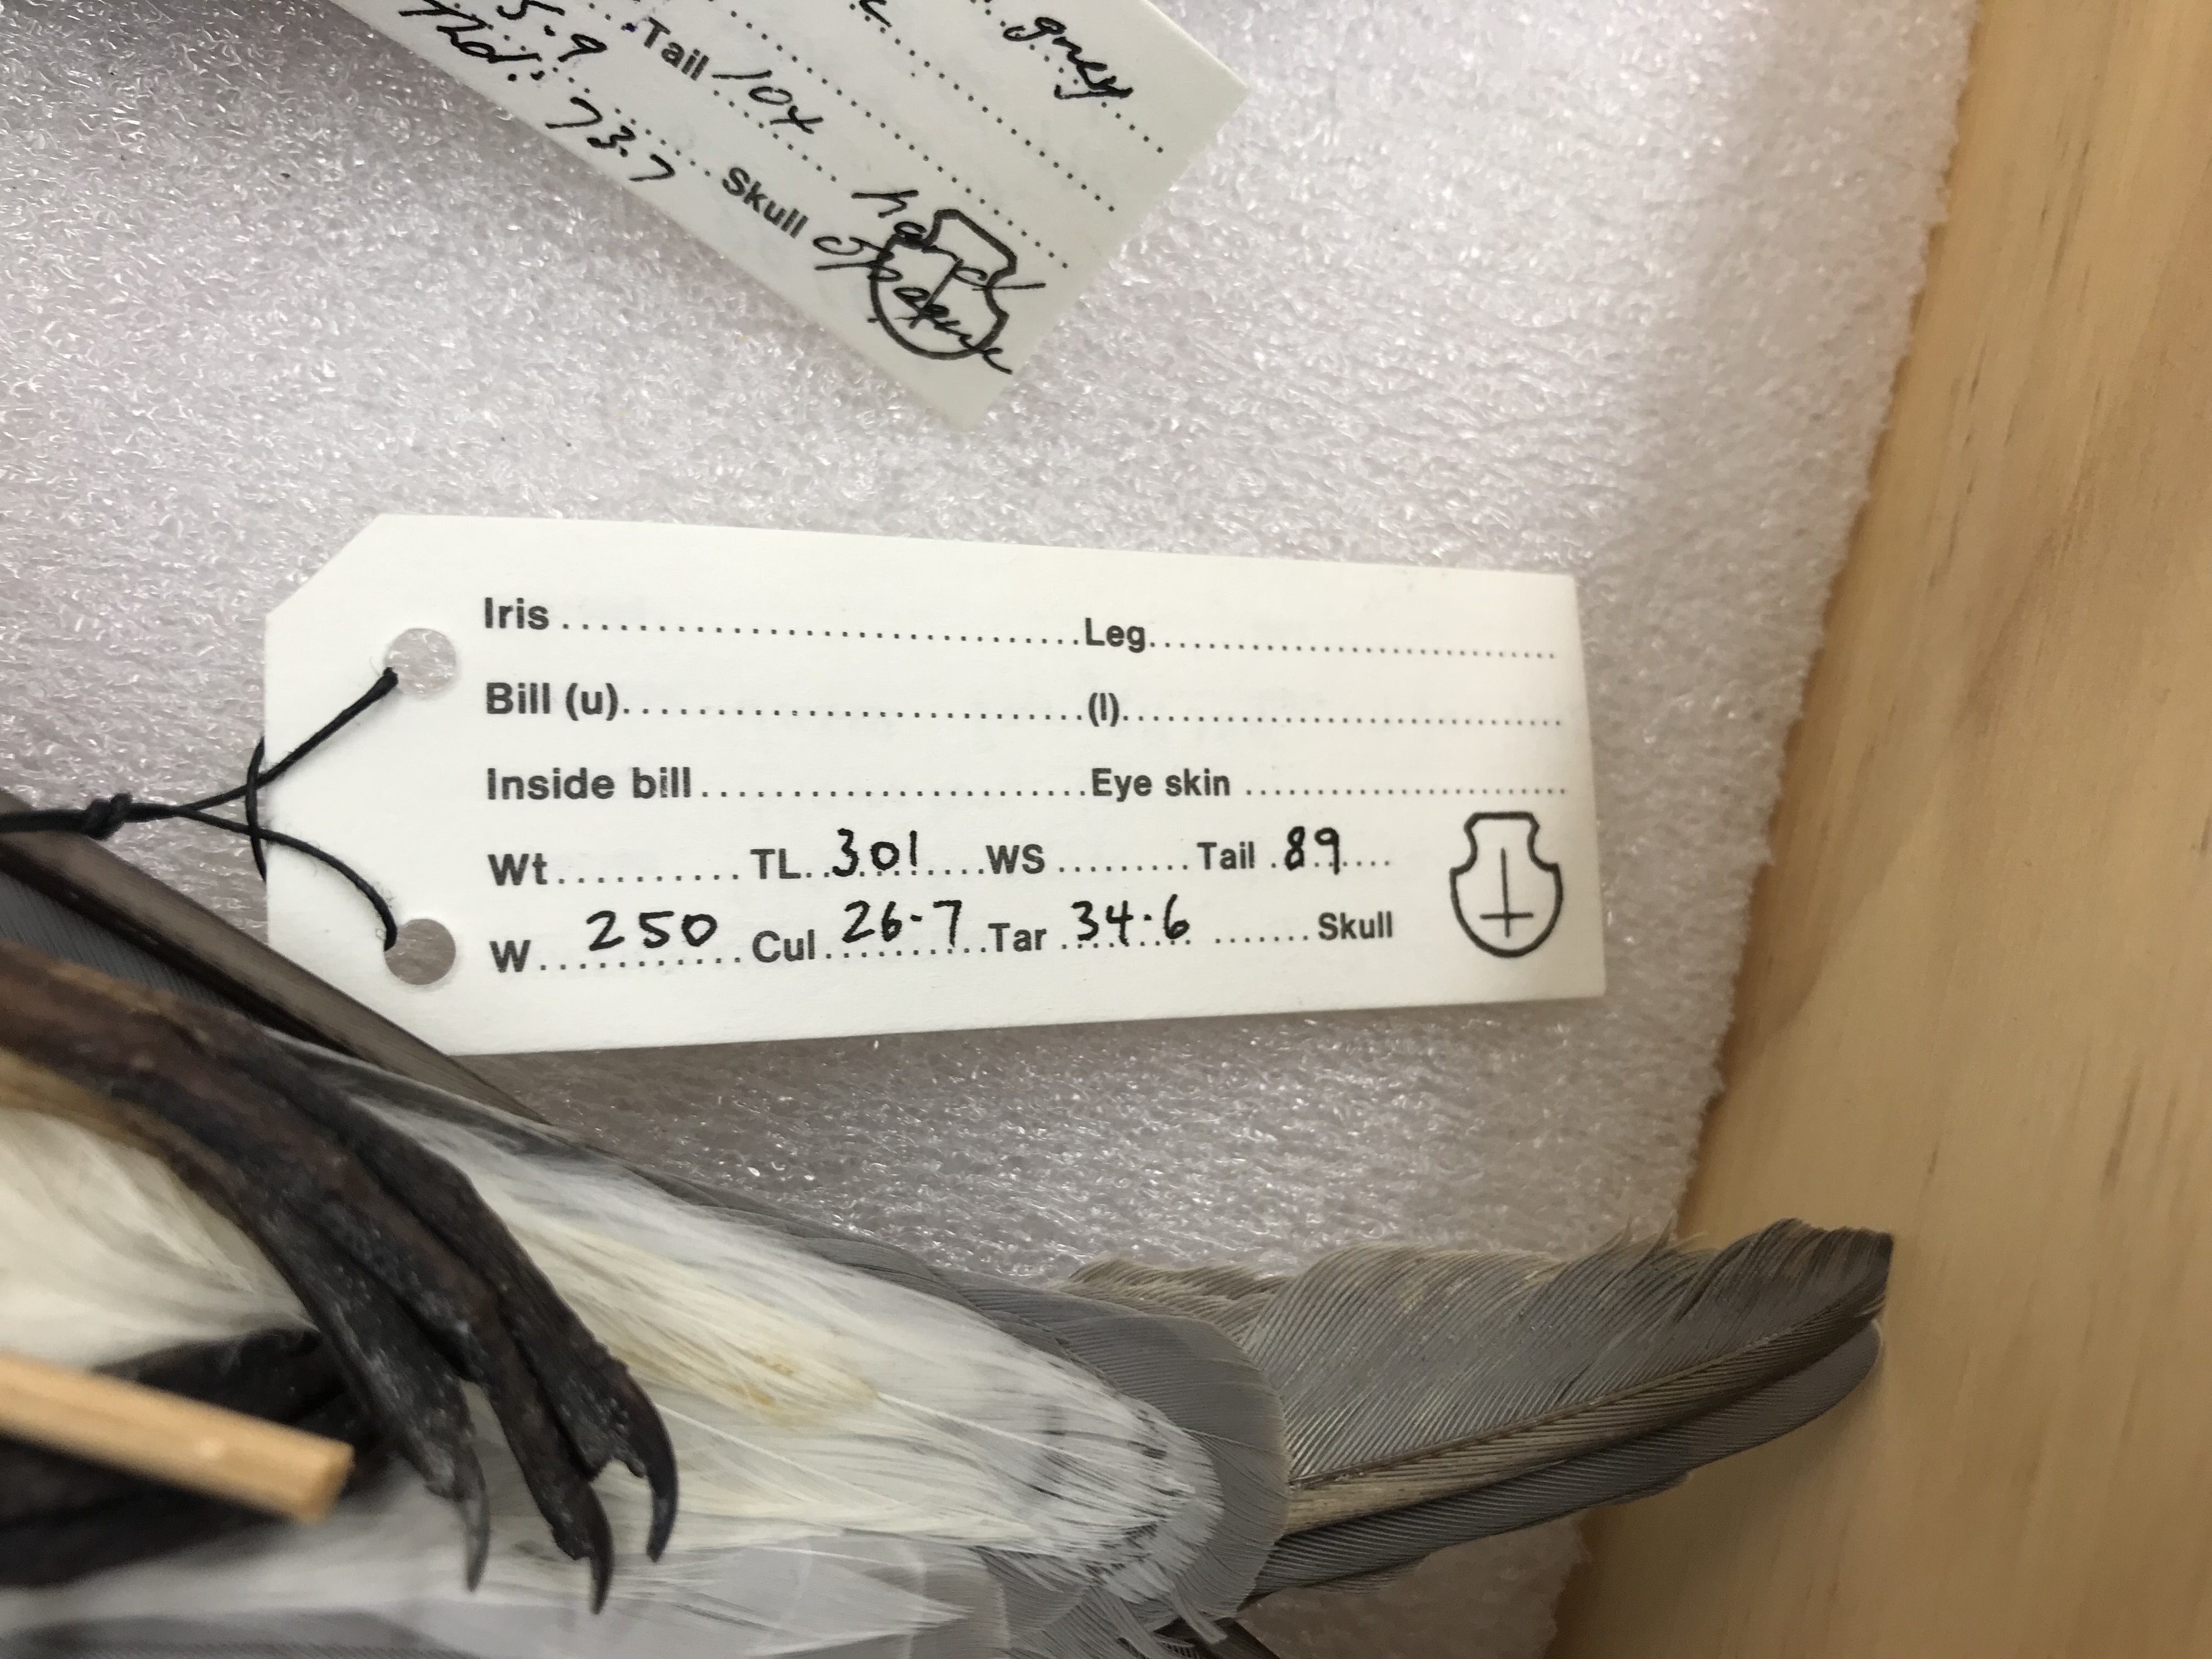 grey
5.9 Tail 104
Mid: 73.7 Skull hard
opaque
Iris Leg
Bill (u) (l)
Inside bill Eye skin
Wt TL 301 WS Tail 89
W 250 Cul 26.7 Tar 34.6 Skull